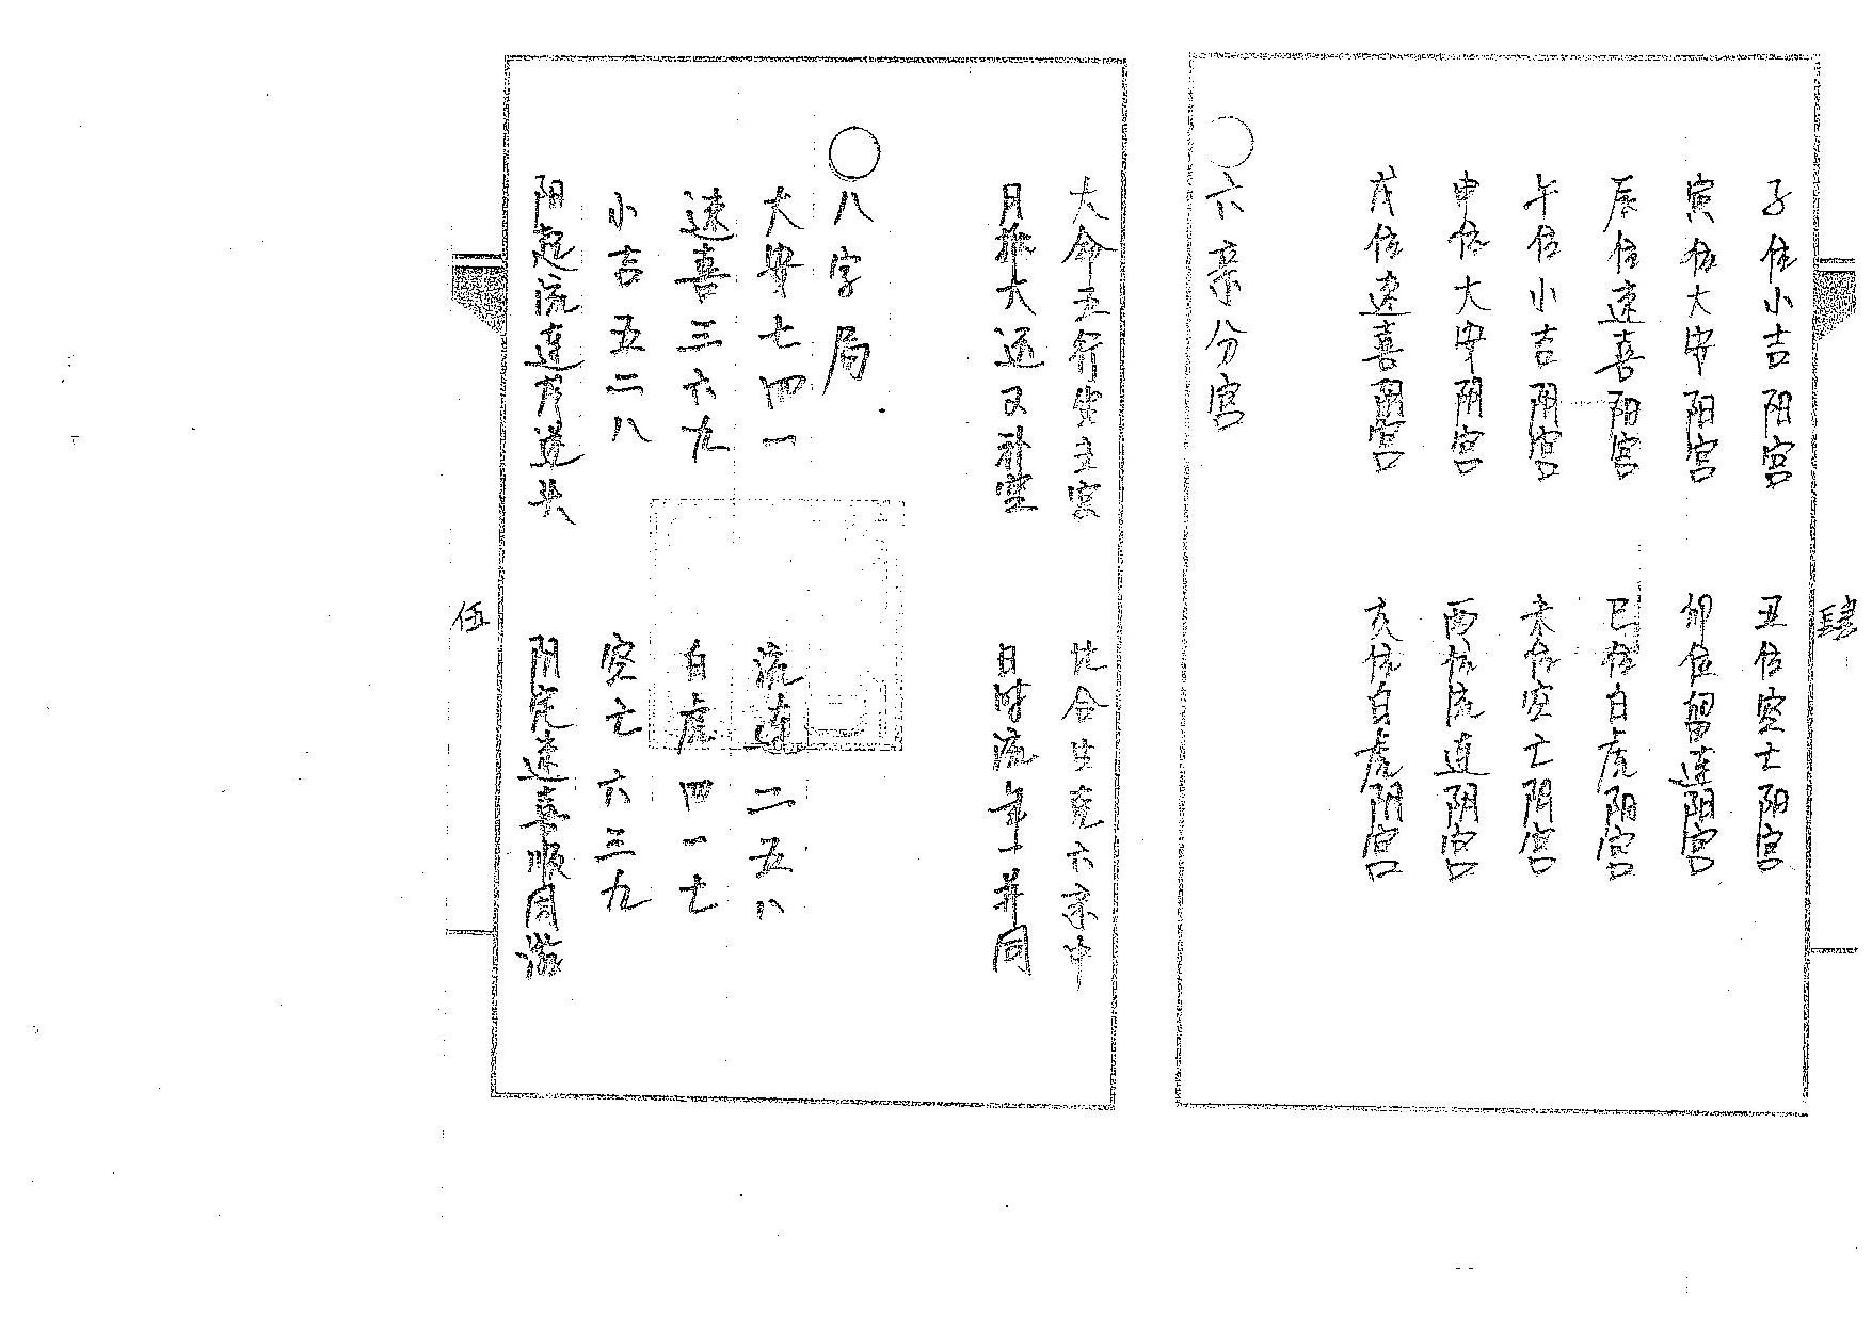 肆
子位小吉阳宫 丑位空亡阳宫
寅位大安阳宫 卯位留连阳宫
辰位速喜阳宫 巳位白虎阳宫
午位小吉阴宫 未位空亡阴宫
申位大安阴宫 酉位流连阴宫
戌位速喜阴宫 亥位白虎阴宫
○六亲分宫
大命五行坐主宫 比合生克六亲中
月推大运又补空 日时流年一并同
○八字局
大安七四一 流连二五八
速喜三六九 白虎四一七
小吉五二八 空亡六三九
阳起流连 阴完速喜顺同游
伍